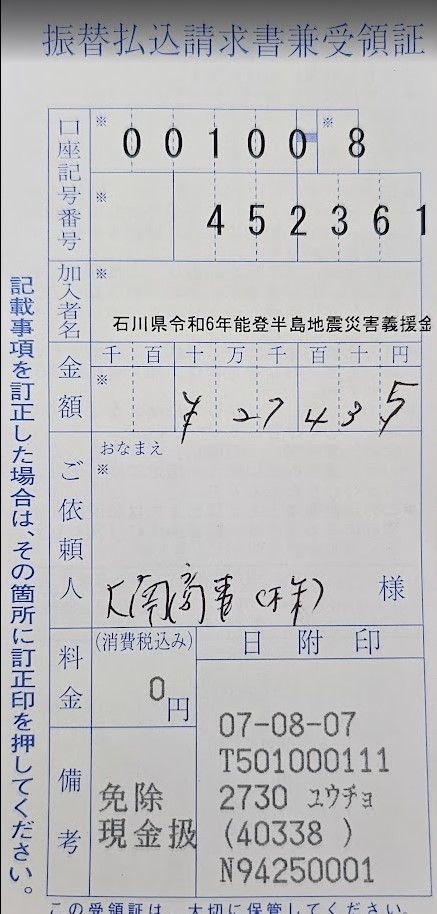 振替払込請求書兼受領証
口座記号番号
※ 00100 ※ 8
※ 452361
加入者名
※
石川県令和6年能登半島地震災害義援金
金額
千 百 十 万 千 百 十 円
※ ¥ 27435
ご依頼人
おなまえ
※
大南商事(株) 様
料金
(消費税込み)
0円
備考
免除
現金扱
日附印
07-08-07
T501000111
2730 ユウチョ
(40338 )
N94250001
記載事項を訂正した場合は、その箇所に訂正印を押してください。
この受領証は、大切に保管してください。